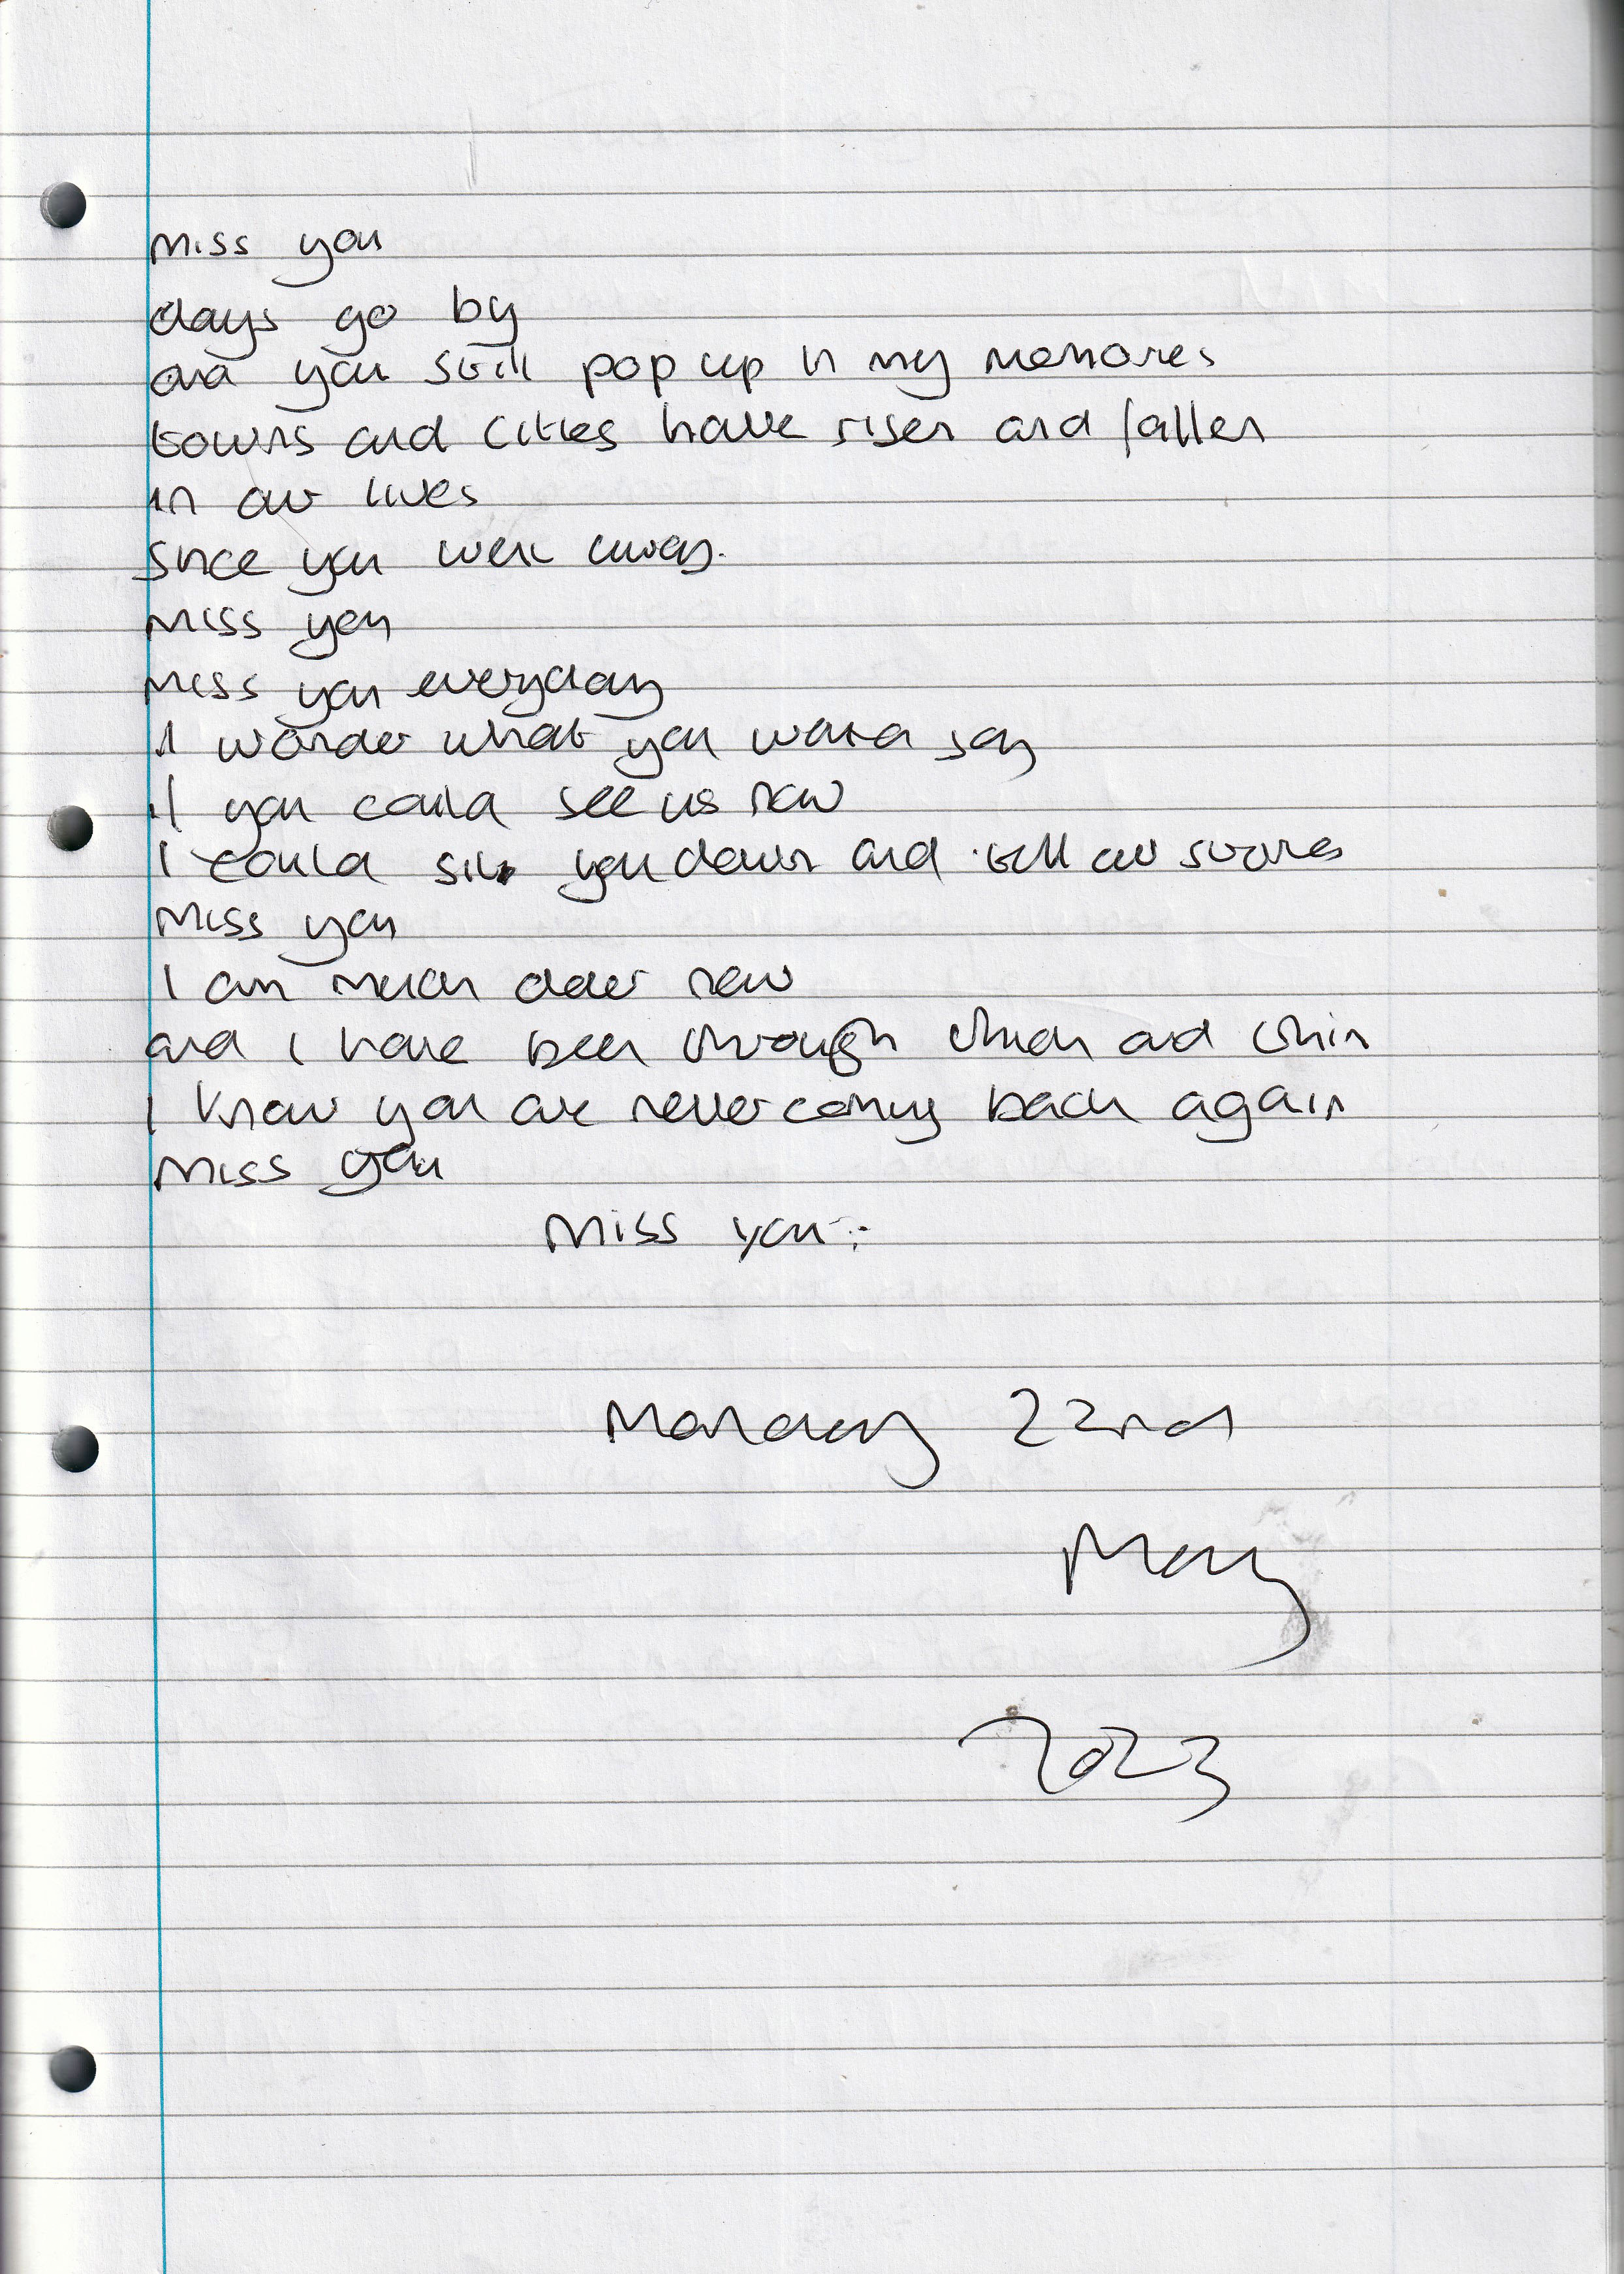 miss you
days go by
and you still pop up in my memories
towns and cities have risen and fallen
in our lives
since you went away.
miss you
miss you everyday
I wonder what you would say
if you could see us now
I could sit you down and tell our stories
miss you
I am much older now
and I have been through thick and thin
I know you are never coming back again
miss you
miss you...
Monday 22nd
May
2023